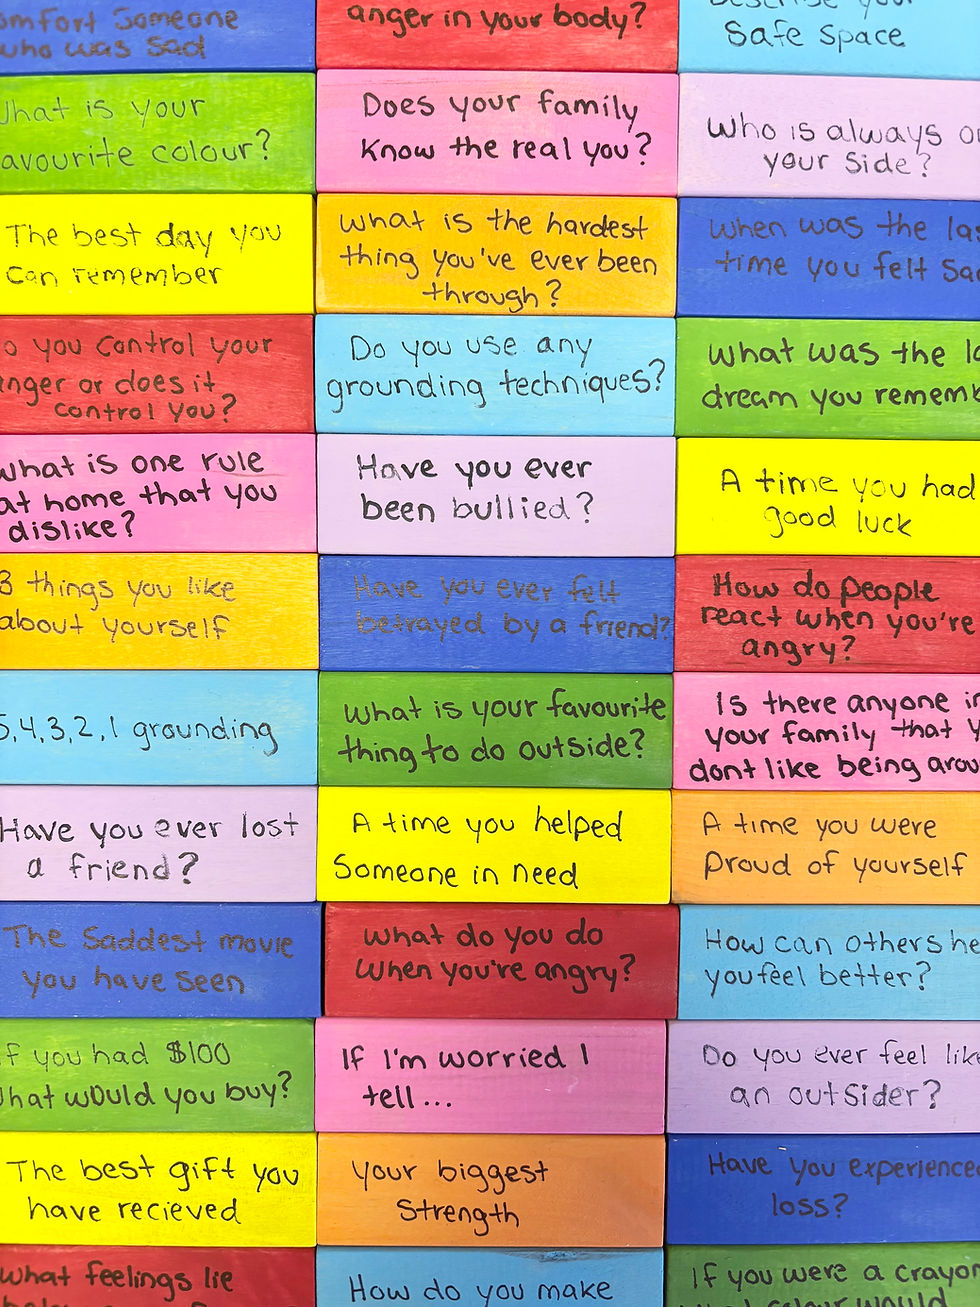 comfort someone
who was sad
anger in your body?
describe your
Safe space
What is your
favourite colour?
Does your family
know the real you?
Who is always on
your side?
The best day you
can remember
What is the hardest
thing you've ever been
through?
When was the last
time you felt sad
Do you control your
anger or does it
control you?
Do you use any
grounding techniques?
What was the la
dream you rememb
What is one rule
at home that you
dislike?
Have you ever
been bullied?
A time you had
good luck
3 things you like
about yourself
Have you ever felt
betrayed by a friend?
How do people
react when you're
angry?
5,4,3,2,1 grounding
What is your favourite
thing to do outside?
Is there anyone in
your family that y
dont like being arou
Have you ever lost
a friend?
A time you helped
Someone in need
A time you were
proud of yourself
The saddest movie
you have seen
What do you do
when you're angry?
How can others he
you feel better?
If you had $100
what would you buy?
If I'm worried I
tell...
Do you ever feel like
an outsider?
The best gift you
have recieved
Your biggest
Strength
Have you experienced
loss?
What feelings lie
How do you make
If you were a crayon
what colour would